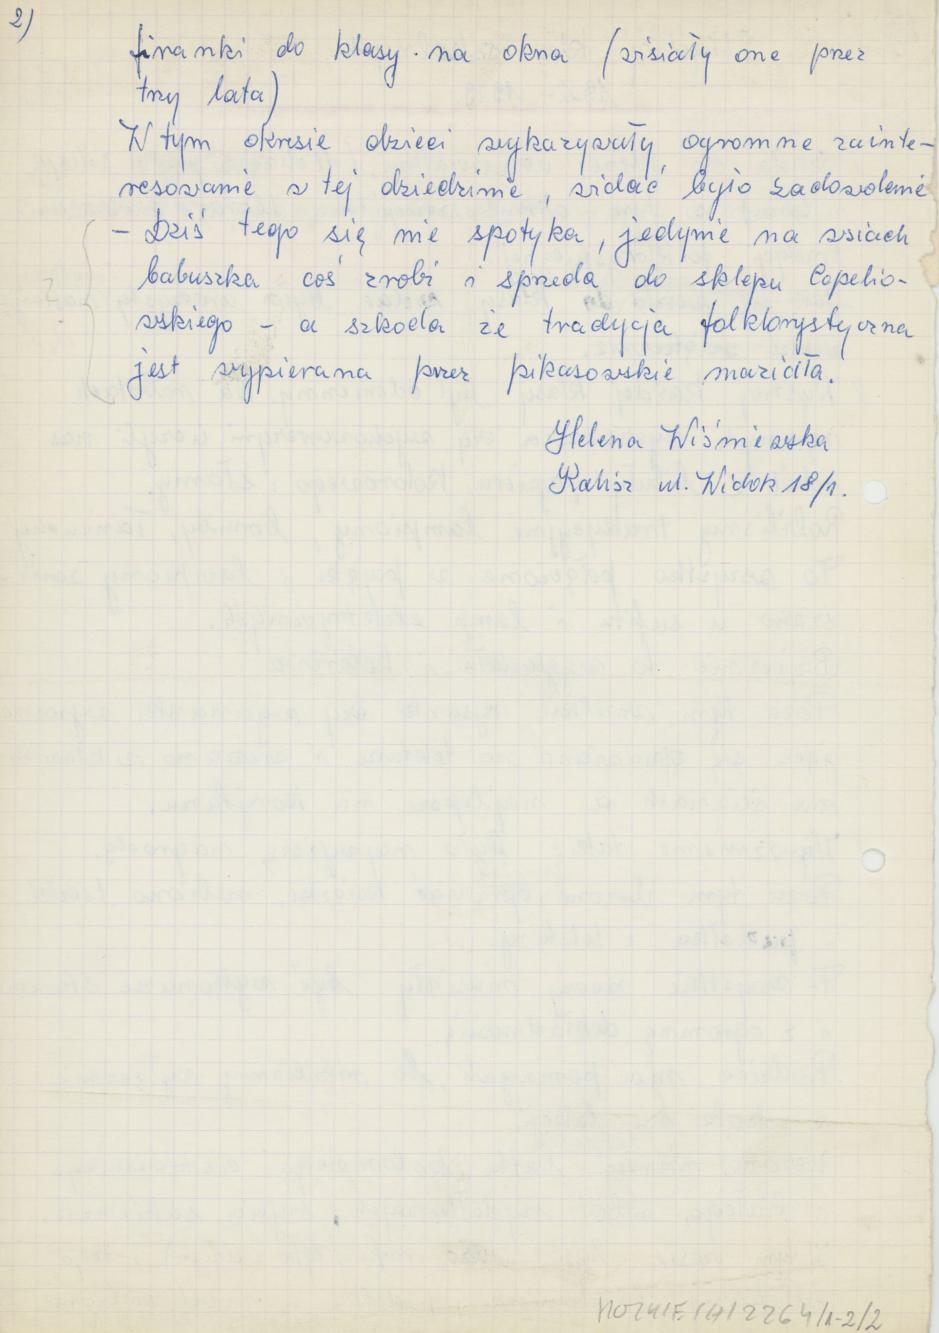 2)
firanki do klasy na okna (wisiały one przez
trzy lata)
W tym okresie dzieci wykazywały ogromne zainte-
resowanie w tej dziedzinie, widać było zadowolenie
- Dziś tego się nie spotyka, jedynie na wsiach
babuszka coś zrobi i spreda do sklepu Cepelio-
wskiego - a szkoda że tradycja folklorystyczna
jest wypierana przez pikasowskie mazidła.
Helena Wiśniewska
Kalisz ul. Widok 18/1.
/1-2/2